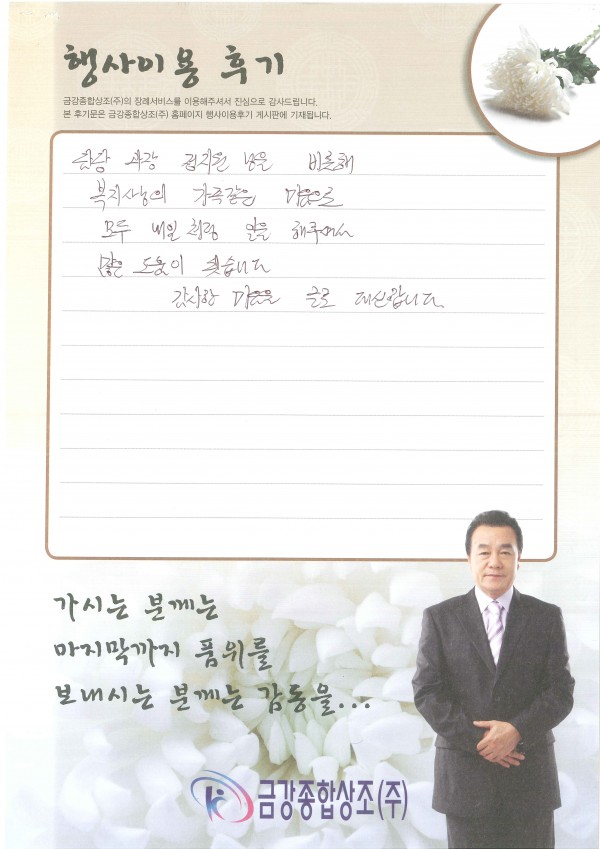 행사이용 후기
금강종합상조(주)의 장례서비스를 이용해주셔서 진심으로 감사드립니다.
본 후기문은 금강종합상조(주) 홈페이지 행사이용후기 게시판에 기재됩니다.
담당 과장 김지원 님을 비롯해
복지사님의 가족같은 마음으로
모두 내일 처럼 일을 해주셔서
많은 도움이 됫습니다
감사한 마음을 글로 대신합니다.
가시는 분께는
마지막까지 품위를
보내시는 분께는 감동을...
금강종합상조(주)